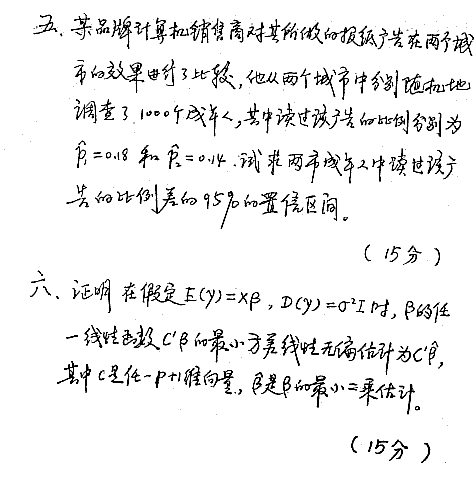 五、某品牌计算机销售商对其所做的报纸广告在两个城
市的效果进行了比较,他从两个城市中分别随机地
调查了1000个成年人,其中读过该广告的比例分别为
P̂₁=0.18 和 P̂₂=0.14.试求两市成年人中读过该广
告的比例差的95%的置信区间。
(15分)
六、证明 在假定E(y)=Xβ,D(y)=σ²I时,β的任
一线性函数C'β的最小方差线性无偏估计为C'β̂,
其中C是任一p+1维向量,β̂是β的最小二乘估计。
(15分)